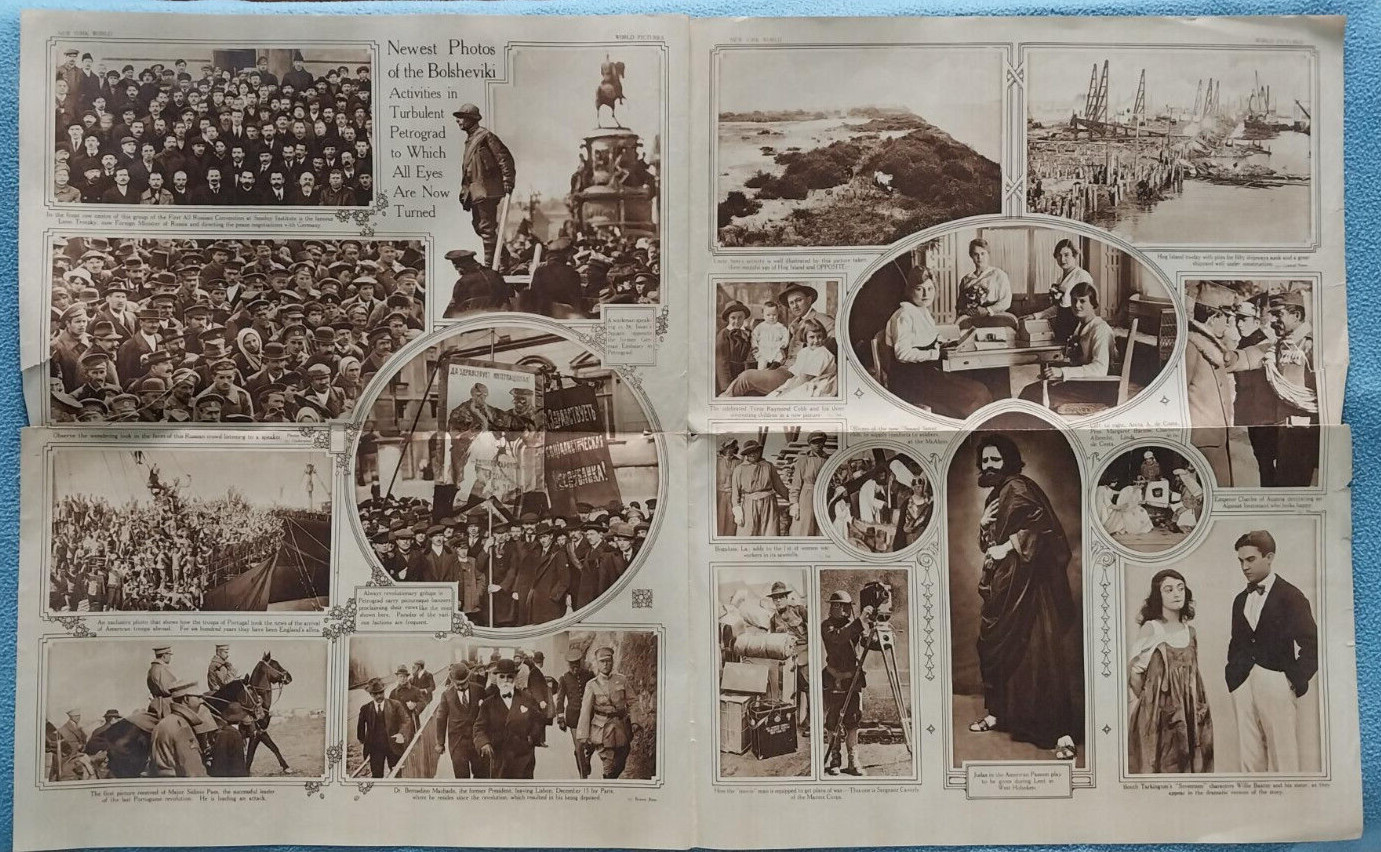 NEW YORK WORLD
WORLD PICTURES
Newest Photos
of the Bolsheviki
Activities in
Turbulent
Petrograd
to Which
All Eyes
Are Now
Turned
In the front row centre of this group of the First All Russian Convention at Smolny Institute is the famous
Leon Trotzky, now Foreign Minister of Russia and directing the peace negotiations with Germany.
A workman speaking
in St. Isaac's
Square, opposite
the former German
Embassy in
Petrograd.
Observe the wondering look in the faces of this Russian crowd listening to a speaker.
ДА ЗДРАВСТВУЕТ
ЗДРАВСТВУЕТЬ
СОЦІАЛИСТИЧЕСКАЯ
РЕСПУБЛИКА!
Always revolutionary groups in
Petrograd carry picturesque banners
proclaiming their views like the ones
shown here. Parades of the various
factions are frequent.
An exclusive photo that shows how the troops of Portugal took the news of the arrival
of American troops abroad. For six hundred years they have been England's allies.
The first picture received of Major Sidonio Paes, the successful leader
of the last Portuguese revolution. He is leading an attack.
Dr. Bernardino Machado, the former President, leaving Lisbon, December 15 for Paris,
where he resides since the revolution, which resulted in his being deposed.
NEW YORK WORLD
WORLD PICTURES
Uncle Sam's activity is well illustrated by this picture taken
three months ago of Hog Island and OPPOSITE
Hog Island to-day with piles for fifty shipways sunk and a great
shipyard well under construction.
The celebrated Tyrus Raymond Cobb and his three
interesting children in a new picture
at the McAlpin
Left to right, Anita A. de Costa,
Emperor Charles of Austria
Bogalusa, La., adds to the list of women war
workers in its sawmills.
How the "movie" man is equipped to get plans of war—This one is Sergeant
of the Marine Corps.
Judas in the American Passion play
to be given during Lent in
West Hoboken.
Booth Tarkington's "Seventeen" characters Willie Baxter and his sister, as they
appear in the dramatic version of the story.